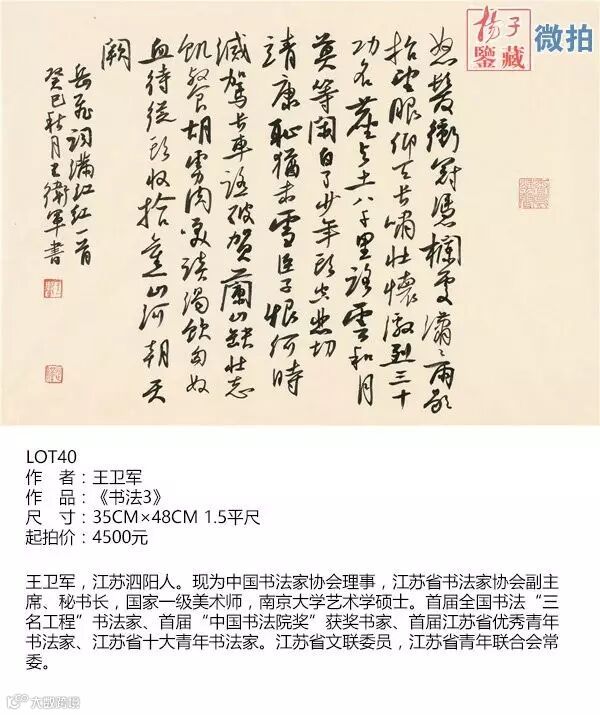 揚子
鑒藏
微拍
怒髮衝冠憑欄處瀟〻雨歇
抬望眼仰天長嘯壯懷激烈三十
功名塵与土八千里路雲和月
莫等閑白了少年頭空悲切
靖康恥猶未雪臣子恨何時
滅駕長車踏破賀蘭山缺壯志
飢餐胡虜肉笑談渴飲匈奴
血待從頭收拾舊山河朝天
闕
岳飛詞滿江紅一首
癸巳秋月王衛軍書
LOT40
作 者：王卫军
作 品：《书法3》
尺 寸：35CM×48CM 1.5平尺
起拍价：4500元
王卫军，江苏泗阳人。现为中国书法家协会理事，江苏省书法家协会副主
席、秘书长，国家一级美术师，南京大学艺术学硕士。首届全国书法“三
名工程”书法家、首届“中国书法院奖”获奖书家、首届江苏省优秀青年
书法家、江苏省十大青年书法家。江苏省文联委员，江苏省青年联合会常
委。
大数跨境